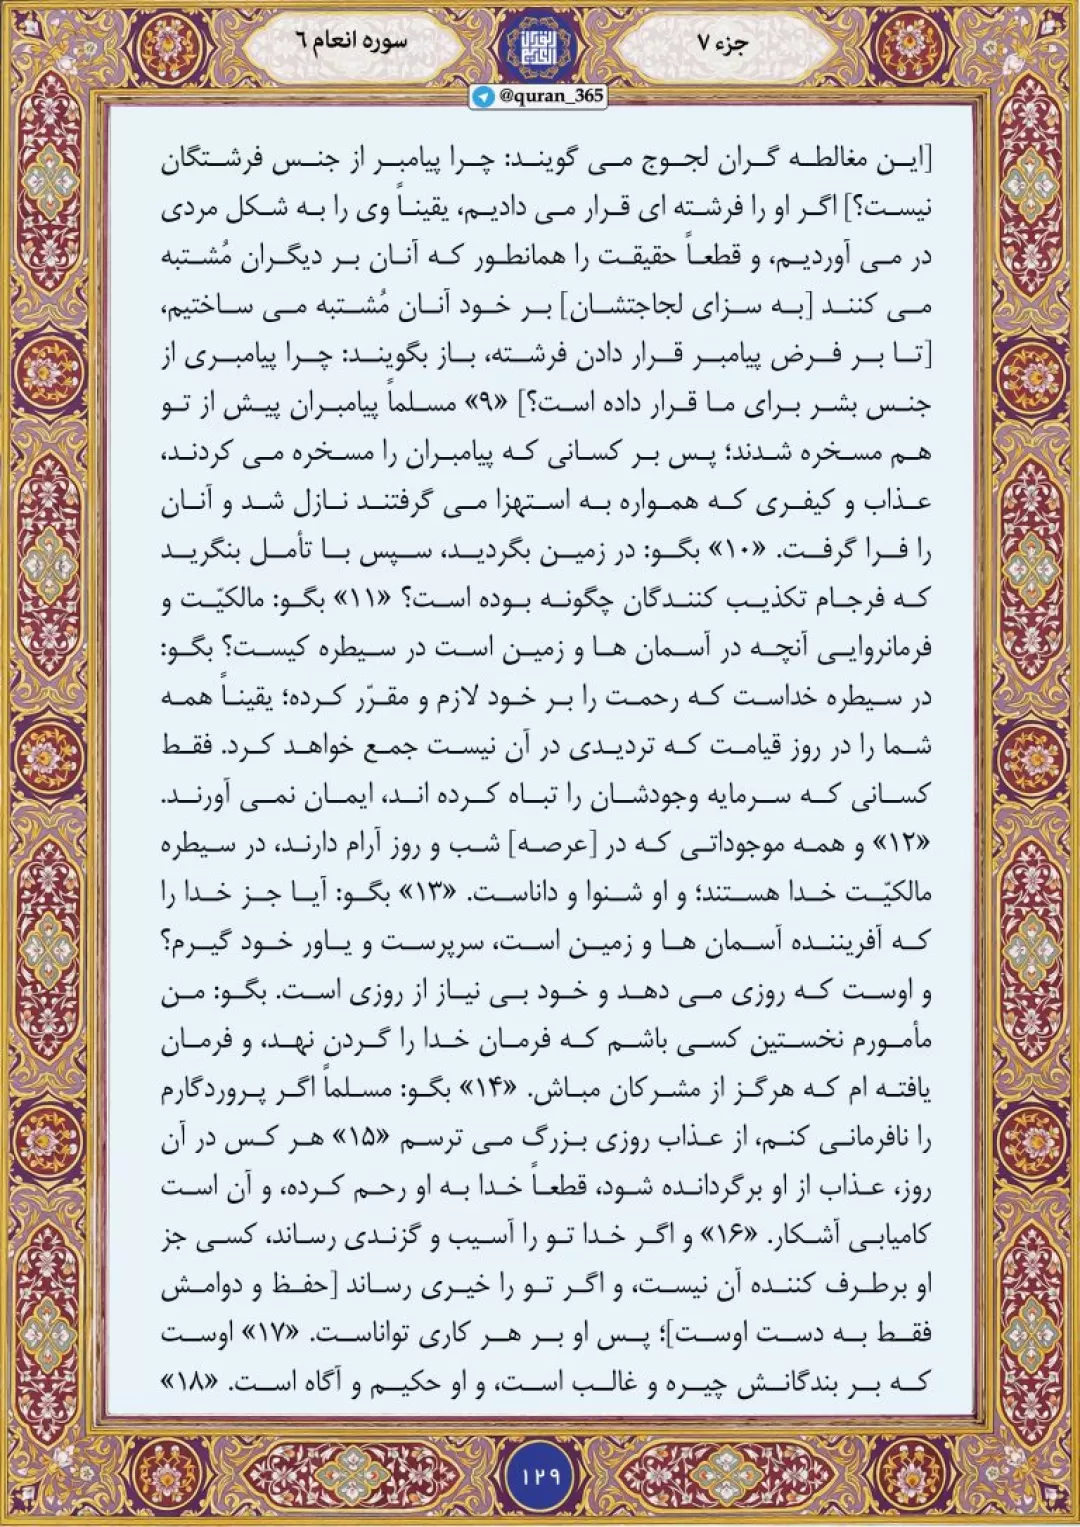 جزء ۷
سوره انعام ۶
@quran_365
[این مغالطه گران لجوج می گویند: چرا پیامبر از جنس فرشتگان
نیست؟] اگر او را فرشته ای قرار می دادیم، یقیناً وی را به شکل مردی
در می آوردیم، و قطعاً حقیقت را همانطور که آنان بر دیگران مُشتبه
می کنند [به سزای لجاجتشان] بر خود آنان مُشتبه می ساختیم،
[تا بر فرض پیامبر قرار دادن فرشته، باز بگویند: چرا پیامبری از
جنس بشر برای ما قرار داده است؟] «۹» مسلماً پیامبران پیش از تو
هم مسخره شدند؛ پس بر کسانی که پیامبران را مسخره می کردند،
عذاب و کیفری که همواره به استهزا می گرفتند نازل شد و آنان
را فرا گرفت. «۱۰» بگو: در زمین بگردید، سپس با تأمل بنگرید
که فرجام تکذیب کنندگان چگونه بوده است؟ «۱۱» بگو: مالکیّت و
فرمانروایی آنچه در آسمان ها و زمین است در سیطره کیست؟ بگو:
در سیطره خداست که رحمت را بر خود لازم و مقرّر کرده؛ یقیناً همه
شما را در روز قیامت که تردیدی در آن نیست جمع خواهد کرد. فقط
کسانی که سرمایه وجودشان را تباه کرده اند، ایمان نمی آورند.
«۱۲» و همه موجوداتی که در [عرصه] شب و روز آرام دارند، در سیطره
مالکیّت خدا هستند؛ و او شنوا و داناست. «۱۳» بگو: آیا جز خدا را
که آفریننده آسمان ها و زمین است، سرپرست و یاور خود گیرم؟
و اوست که روزی می دهد و خود بی نیاز از روزی است. بگو: من
مأمورم نخستین کسی باشم که فرمان خدا را گردن نهد، و فرمان
یافته ام که هرگز از مشرکان مباش. «۱۴» بگو: مسلماً اگر پروردگارم
را نافرمانی کنم، از عذاب روزی بزرگ می ترسم «۱۵» هر کس در آن
روز، عذاب از او برگردانده شود، قطعاً خدا به او رحم کرده، و آن است
کامیابی آشکار. «۱۶» و اگر خدا تو را آسیب و گزندی رساند، کسی جز
او برطرف کننده آن نیست، و اگر تو را خیری رساند [حفظ و دوامش
فقط به دست اوست]؛ پس او بر هر کاری تواناست. «۱۷» اوست
که بر بندگانش چیره و غالب است، و او حکیم و آگاه است. «۱۸»
۱۲۹